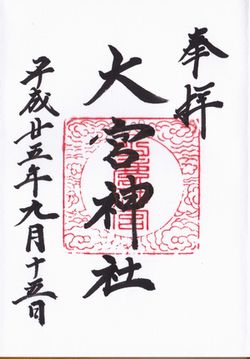 奉拝
大宮神社
平成廿五年九月十五日